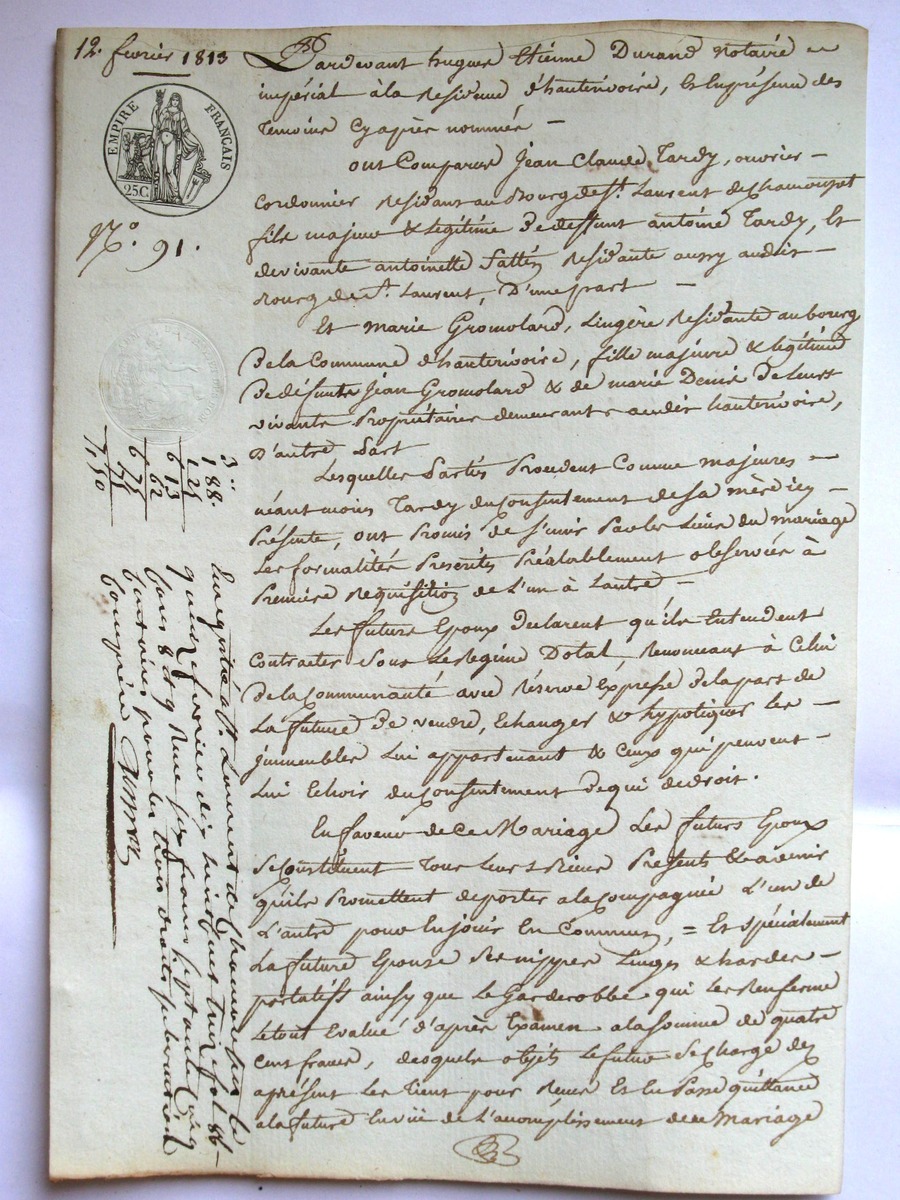 12. fevrier 1813
EMPIRE FRANÇAIS
25C.
N.° 91.
Pardevant hugues Etienne Durand Notaire
impérial à la Residence d'hauterivoire, & En présence des
temoins Cyaprès nommés —
ont Comparus Jean Claude Tardy, ouvrier —
Cordonnier Residant au Bourg de St. Laurent de Chamousset
fils majeur & legitime de deffunt antoine Tardy, Et
de vivante antoinette Residante aussy audit —
Bourg de St. Laurent, D'une part —
Et Marie Gromolard, Lingère Residante au bourg
De la Commune d'hauterivoire, fille majeure & legitime
De défunts Jean Gromolard & de marie Denis De leurs
vivants Propriétaires demeurants audit hauterivoire,
D'autre Part
Lesquelles Parties Procedent Comme majeures —
néant moins Tardy du Consentement de Sa mère icy —
Présente, ont Promis de s'unir Par les Liens du mariage
Les formalités Prescrites Préalablement observées à
Premiere Réquisition de L'un à Lautre —
Les futurs Epoux declarent qu'ils Entendent
Contracter Sous Le Regime Dotal, Renonceant à Celui
De la Communauté avec Réserve Expresse De la part de
La future De vendre, Echanger & hypotéquer les —
jmmeubles Lui appartenant & Ceux qui peuvent —
Lui Echoir du Consentement De qui de droit.
En faveur de Ce Mariage Les futurs Epoux
Se Constituent Tous leurs Biens Presents & avenir
qu'ils Promettent de porter a la Compagnie L'un de
L'autre pour En joüir En Commun, = Et Spécialement
La future Epouse Ses nippes Linges & hardes —
portatifs ainsy que Le Garderobbe qui Les Renferme
Le tout Evalué d'après Examen a la somme de quatre
Cent francs, desquels objets Le futur Se Charge dès
aprésent Les Tient pour Reçus Et En Passe quittance
a la future En vüe de L'accomplissement de ce Mariage
3 "
1 88.
1 25
6 13
62
6 75
75
7,50
Enregistré à St. Laurent de Chamousset le
quinze fevrier dix huit cent treize fol. 86
Reçu six francs septante cinq
centimes pour les trois droits